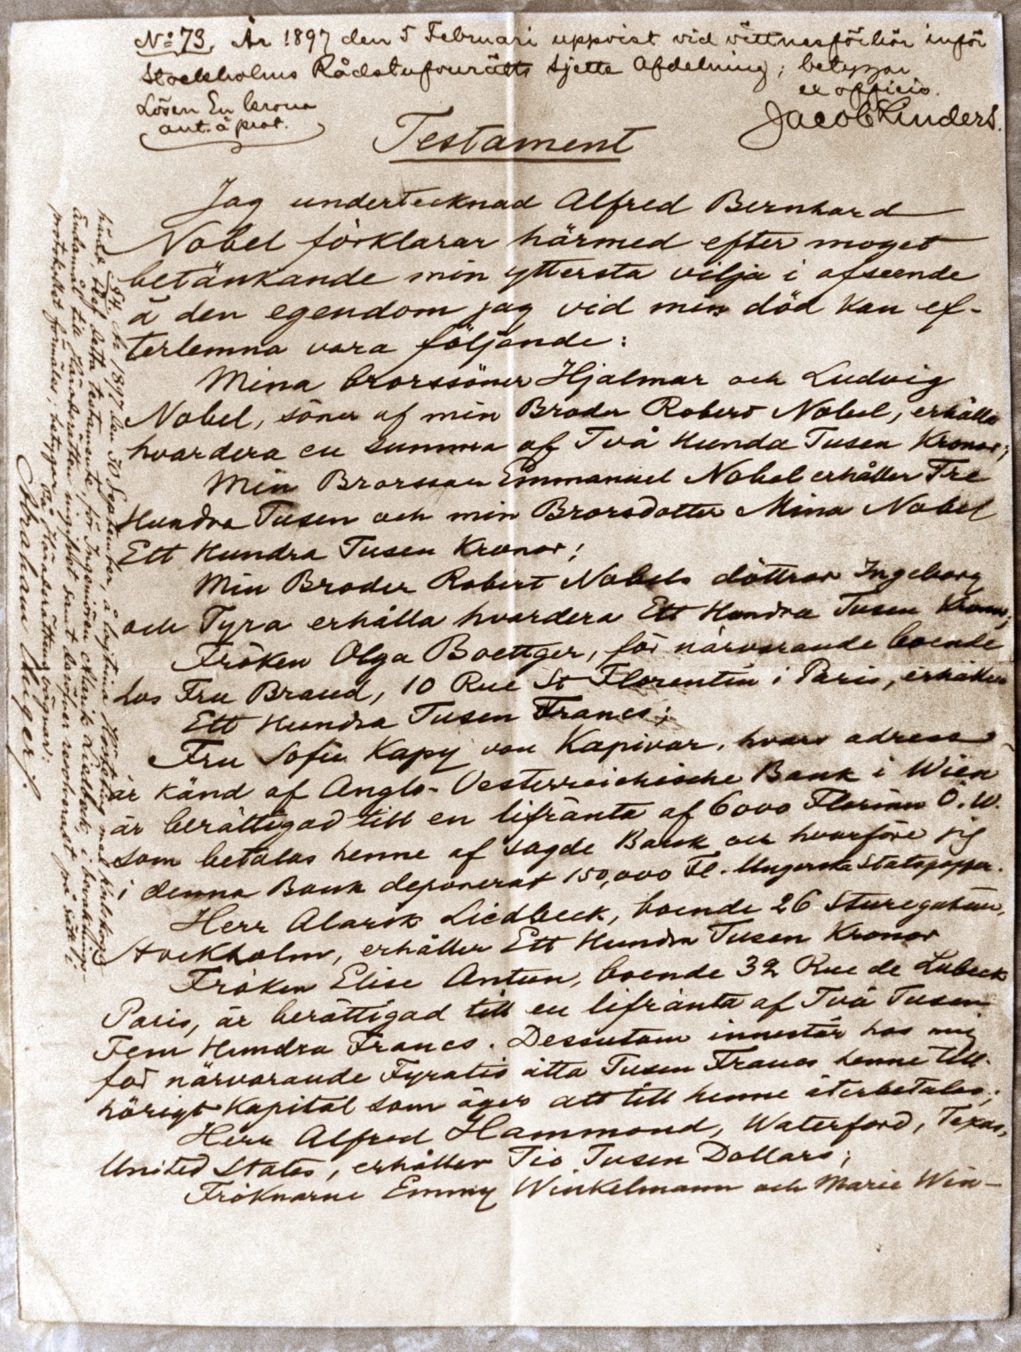 No 73, År 1897 den 5 Februari uppvist vid vittnesförhör inför
Stockholms Rådstufvurätts sjette Afdelning; betygar
ex officio.
Lösen En krona
ant. å prot.
Jacob Linders.
Testament
Jag undertecknad Alfred Bernhard
Nobel förklarar härmed efter moget
betänkande min yttersta vilja i afseende
å den egendom jag vid min död kan ef-
terlemna vara följande:
Mina brorssöner Hjalmar och Ludvig
Nobel, söner af min Broder Robert Nobel, erhålla
hvardera en summa af Två Hundra Tusen Kronor;
Min Brorsson Emmanuel Nobel erhåller Tre
Hundra Tusen och min Brorsdotter Mina Nobel
Ett Hundra Tusen Kronor;
Min Broder Robert Nobels döttrar Ingeborg
och Tyra erhålla hvardera Ett Hundra Tusen Kronor;
Fröken Olga Boettger, för närvarande boende
hos Fru Brand, 10 Rue St Florentin i Paris, erhåller
Ett Hundra Tusen Francs;
Fru Sofie Kapy von Kapivar, hvars adress
är känd af Anglo-Oesterreichische Bank i Wien
är berättigad till en lifränta af 6000 Florins Ö.W.
som betalas henne af sagde Bank och hvarföre jag
i denna Bank deponerat 150,000 Fl. Ungerska Statspapper.
Herr Alarik Liedbeck, boende 26 Sturegatan,
Stockholm, erhåller Ett Hundra Tusen Kronor
Fröken Elise Antun, boende 32 Rue de Lubeck
Paris, är berättigad till en lifränta af Två Tusen
Fem Hundra Francs. Dessutom innestår hos mig
för närvarande Fyratio åtta Tusen Francs henne till-
hörigt Kapital som äger att till henne återbetalas;
Herr Alfred Hammond, Waterford, Texas,
United States, erhåller Tio Tusen Dollars;
Fröknarne Emmy Winkelmann och Marie Win-
År 1897 den 30 September, å lagtima
för Ingeniören Alarik Liedbeck
Abraham Unger